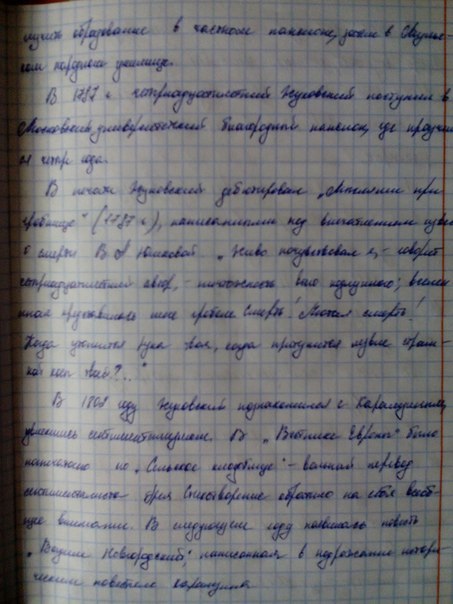 лучить образование в частном пансионе, затем в
ком народном училище.
В 1797 г. четырнадцатилетний Жуковский поступил в
Московский университетский благородный пансион, где
четыре года.
В печати Жуковский дебютировал „Мыслями при
гробнице" (1797 г.), написанными под впечатлением
о смерти В. А. Юшковой. „Живо почувствовал я, - говорит
четырнадцатилетний автор, - ничтожность всего подлунного; вселен
ная представилась мне гробом Смерть! Лютая смерть!
Когда утомится рука твоя, когда притупится лезвие страш-
ной косы твоей?..."
В 1802 году Жуковский познакомился с Карамзиным,
увлекшись сентиментализмом. В „Вестнике Европы" было
напечатано „Сельское кладбище" - вольный перевод
Грея Стихотворение обратило на себя всеоб-
щее внимание. В следующем году появилась повесть
„Вадим Новгородский", написанная в подражание истори-
ческим повестям Карамзина